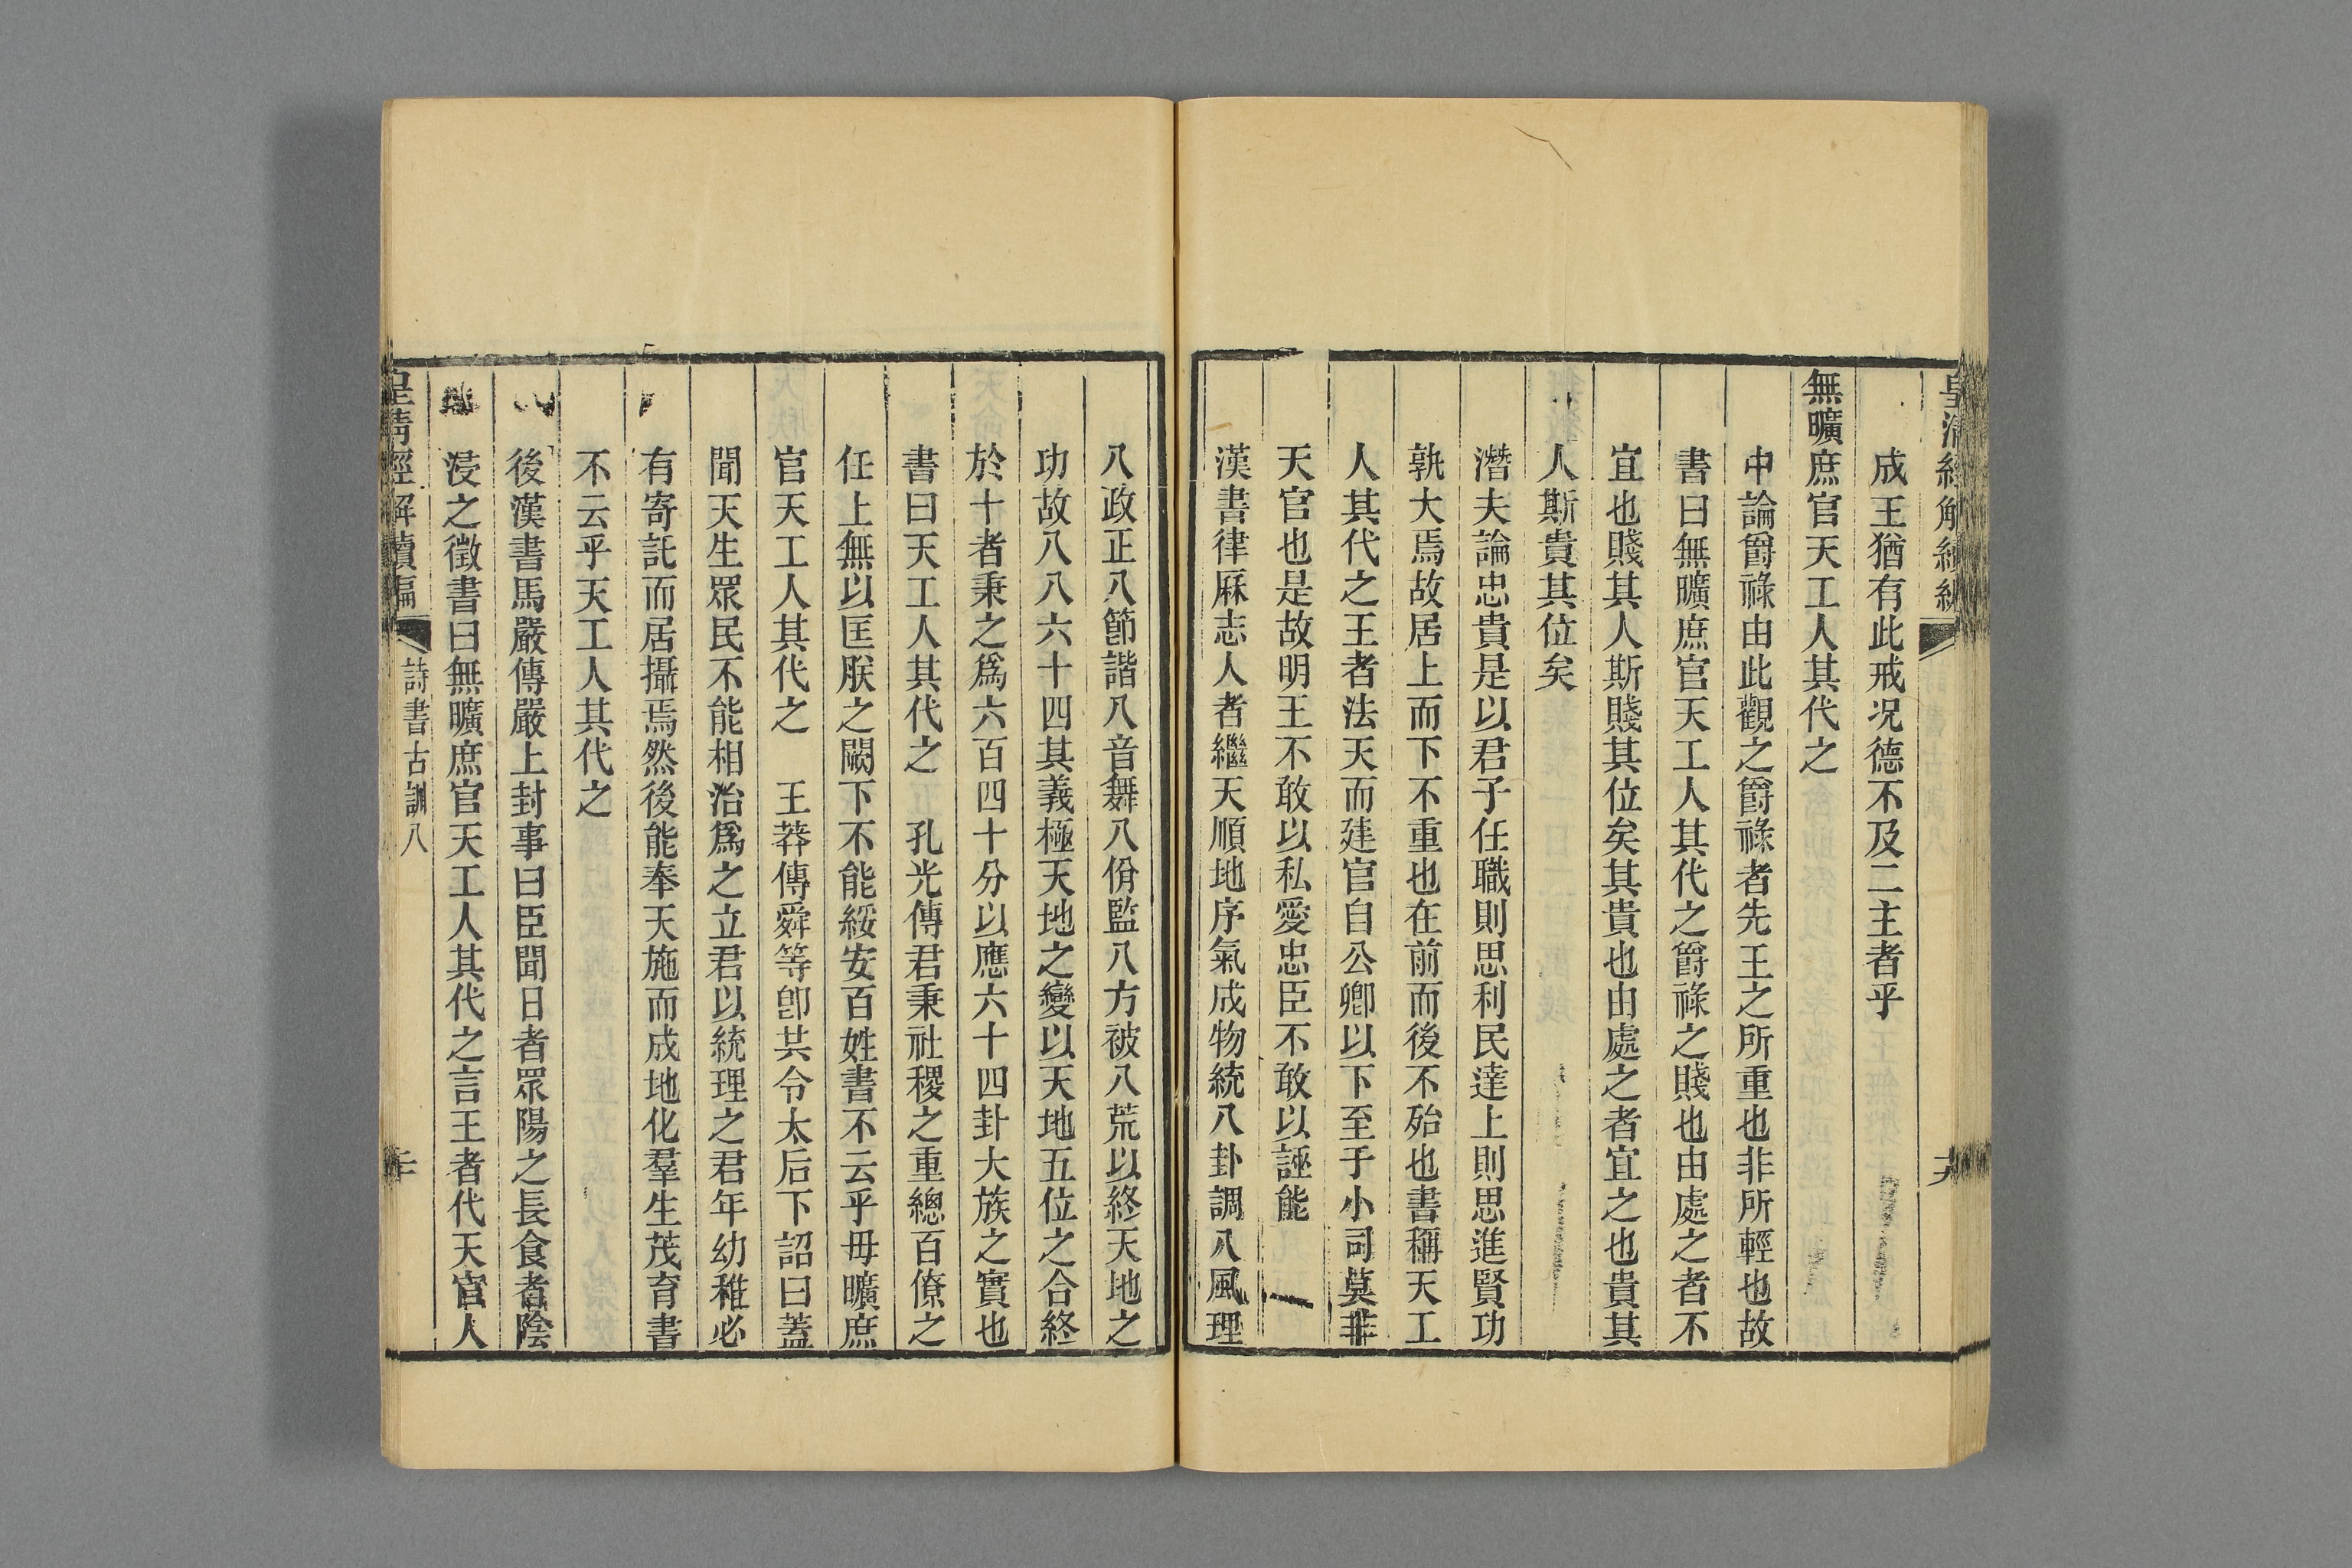 皇清經解續編
成王猶有此戒況德不及二主者乎
無曠庶官天工人其代之
中論爵祿由此觀之爵祿者先王之所重也非所輕也故
書曰無曠庶官天工人其代之爵祿之賤也由處之者不
宜也賤其人斯賤其位矣其貴也由處之者宜之也貴其
人斯貴其位矣
潛夫論忠貴是以君子任職則思利民達上則思進賢功
孰大焉故居上而下不重也在前而後不殆也書稱天工
人其代之王者法天而建官自公卿以下至于小司莫非
天官也是故明王不敢以私愛忠臣不敢以誣能
漢書律厤志人者繼天順地序氣成物統八卦調八風理
八政正八節諧八音舞八佾監八方被八荒以終天地之
功故八八六十四其義極天地之變以天地五位之合終
於十者乘之爲六百四十分以應六十四卦大族之實也
書曰天工人其代之　孔光傳君秉社稷之重總百僚之
任上無以匡朕之闕下不能綏安百姓書不云乎毋曠庶
官天工人其代之　王莽傳舜等卽共令太后下詔曰蓋
聞天生眾民不能相治爲之立君以統理之君年幼稚必
有寄託而居攝焉然後能奉天施而成地化羣生茂育書
不云乎天工人其代之
後漢書馬嚴傳嚴上封事曰臣聞日者眾陽之長食者陰
浸之徵書曰無曠庶官天工人其代之言王者代天官人
皇清經解續編
詩書古訓八